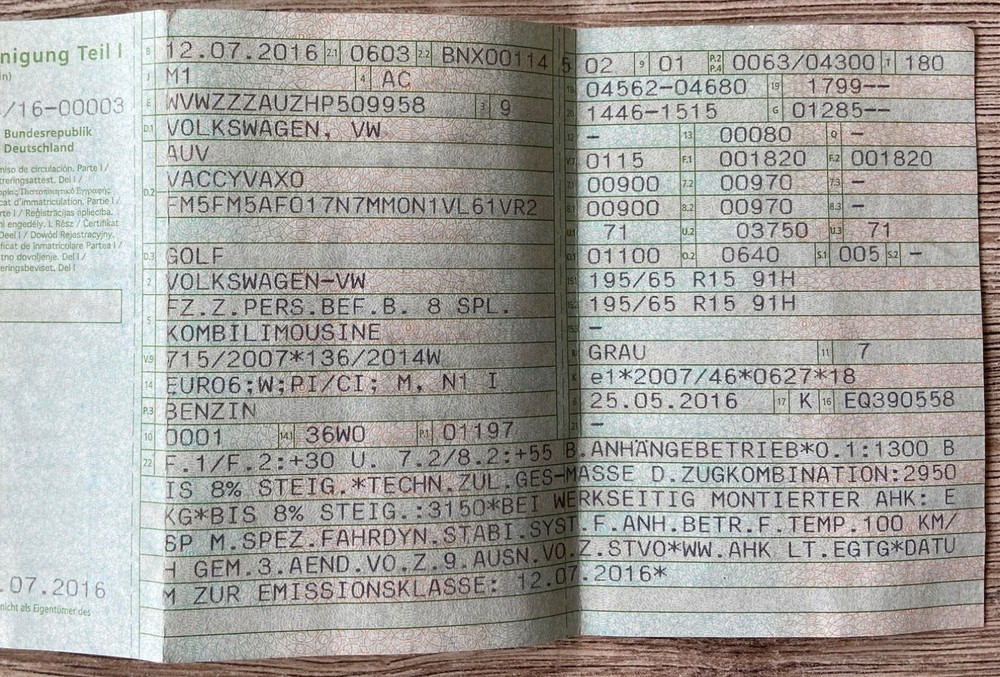 nigung Teil I
/16-00003
Bundesrepublik
Deutschland
miso de circulación. Parte I /
treringsattest. Del I /
cat d'immatriculation. Partie I /
rte I / Reģistrācijas apliecība.
ni engedély. I. Rész / Ċertifikat
Deel I / Dowód Rejestracyjny.
ficat de înmatriculare Partea I /
tno dovoljenje. Del I /
eringsbeviset. Del I
.07.2016
nicht als Eigentümer des
B 12.07.2016 2.1 0603 2.2 BNX00114 5
J M1 4 AC
E WVWZZZAUZHP509958 3 9
D.1 VOLKSWAGEN, VW
AUV
D.2 VACCYVAX0
FM5FM5AF017N7MMON1VL61VR2
D.3 GOLF
2 VOLKSWAGEN-VW
5 FZ.Z.PERS.BEF.B. 8 SPL.
KOMBILIMOUSINE
V.9 715/2007*136/2014W
14 EURO6;W;PI/CI; M, N1 I
P.3 BENZIN
10 0001 14.1 36W0 P.1 01197
02 9 01 P.2 P.4 0063/04300 T 180
04562-04680 19 1799--
1446-1515 G 01285--
- 13 00080 Q -
V.7 0115 F.1 001820 F.2 001820
7.1 00900 7.2 00970 7.3 -
8.1 00900 8.2 00970 8.3 -
U.1 71 U.2 03750 U.3 71
O.1 01100 O.2 0640 S.1 005 S.2 -
195/65 R15 91H
195/65 R15 91H
-
R GRAU 11 7
K e1*2007/46*0627*18
6 25.05.2016 17 K 16 EQ390558
21 -
22 F.1/F.2:+30 U. 7.2/8.2:+55 B.ANHÄNGEBETRIEB*O.1:1300 B
IS 8% STEIG.*TECHN.ZUL.GES-MASSE D.ZUGKOMBINATION:2950
KG*BIS 8% STEIG.:3150*BEI WERKSEITIG MONTIERTER AHK: E
SP M.SPEZ.FAHRDYN.STABI.SYST.F.ANH.BETR.F.TEMP.100 KM/
H GEM.3.AEND.VO.Z.9.AUSN.VO.Z.STVO*WW.AHK LT.EGTG*DATU
M ZUR EMISSIONSKLASSE: 12.07.2016*